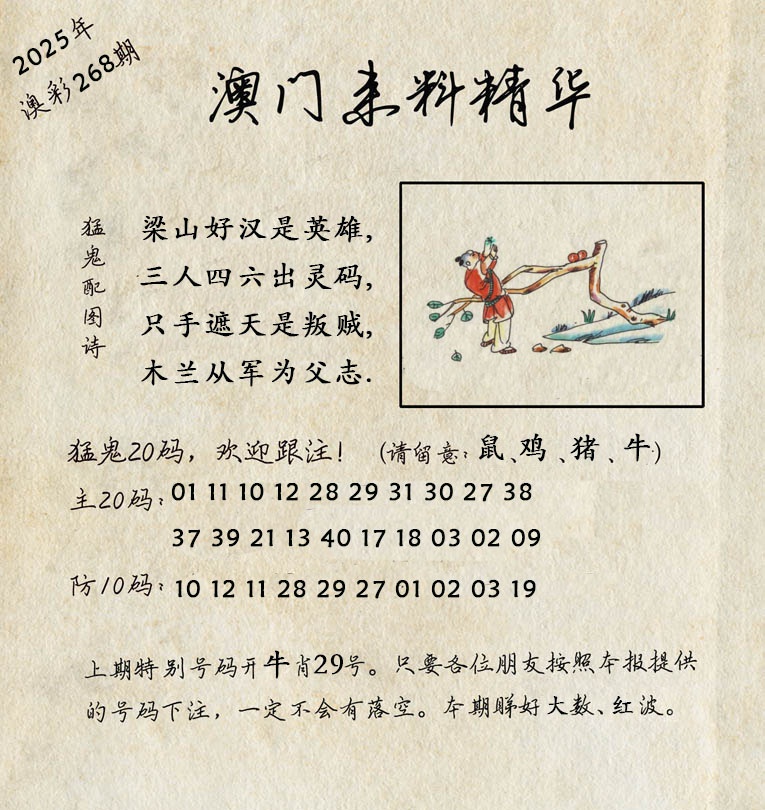 2025年
澳彩268期
澳门来料精华
猛鬼配图诗
梁山好汉是英雄,
三人四六出灵码,
只手遮天是叛贼,
木兰从军为父志.
猛鬼20码，欢迎跟注！（请留意：鼠、鸡、猪、牛）
主20码：01 11 10 12 28 29 31 30 27 38
37 39 21 13 40 17 18 03 02 09
防10码：10 12 11 28 29 27 01 02 03 19
上期特别号码开牛肖29号。只要各位朋友按照本报提供
的号码下注，一定不会有落空。本期睇好大数、红波。